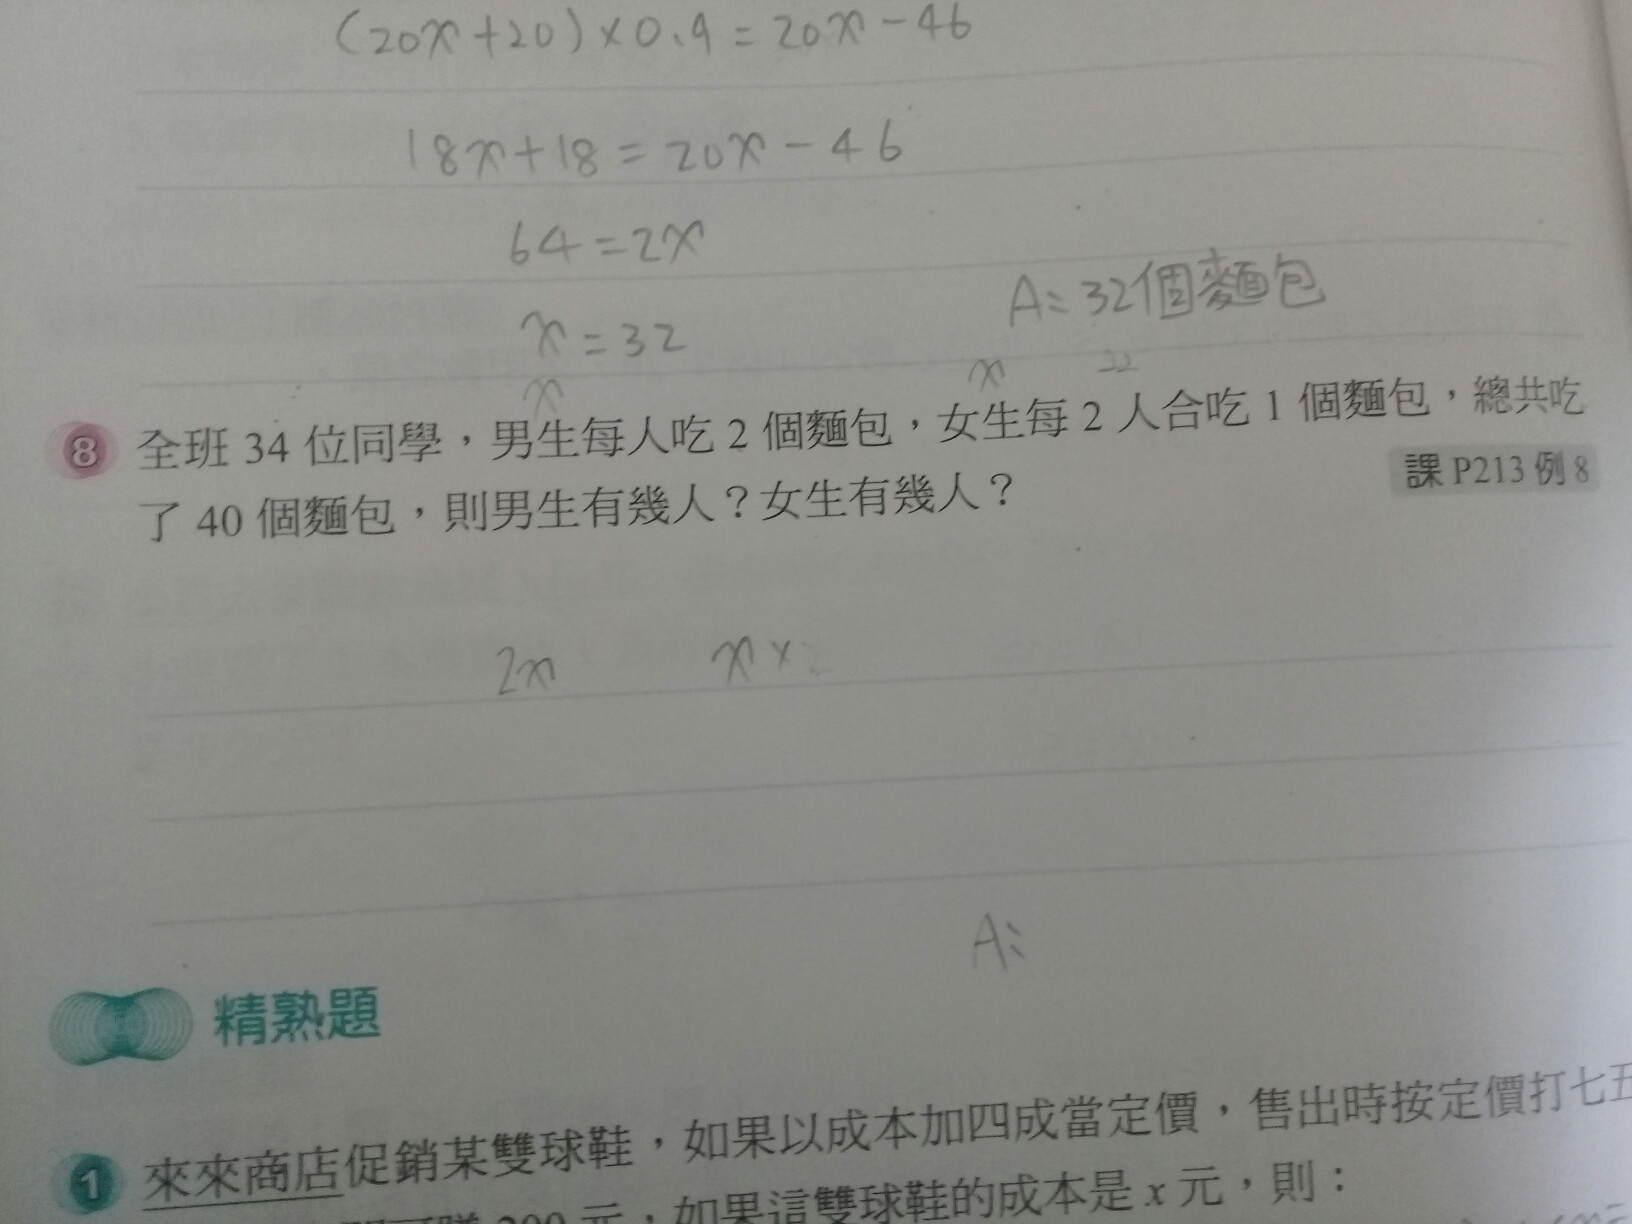 (20x+20)×0.9=20x-46
18x+18=20x-46
64=2x
A:32個麵包
x=32
x x 22
8 全班 34 位同學，男生每人吃 2 個麵包，女生每 2 人合吃 1 個麵包，總共吃
了 40 個麵包，則男生有幾人？女生有幾人？
課 P213 例 8
2x x×2
A:
精熟題
1 來來商店促銷某雙球鞋，如果以成本加四成當定價，售出時按定價打七五
200 元，如果這雙球鞋的成本是 x 元，則：